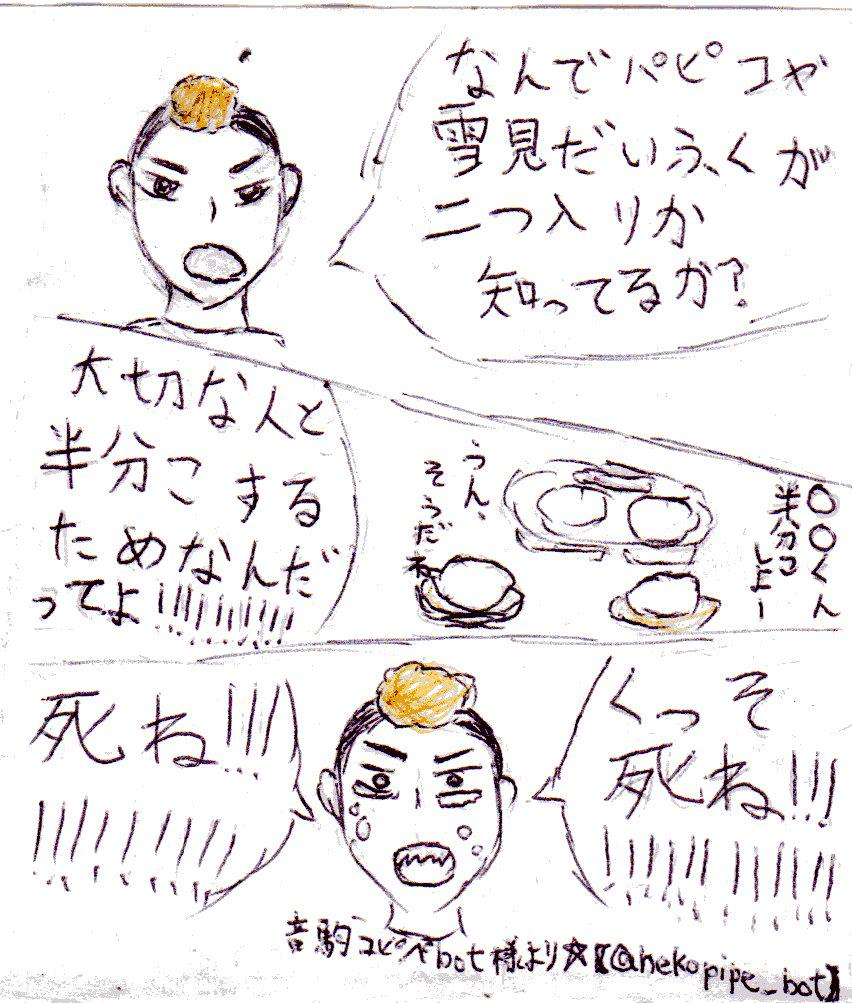 なんでパピコや
雪見だいふくが
二つ入りか
知ってるか?
大切な人と
半分こする
ためなんだ
ってよ!!!!!!!!!!
〇〇くん
半分こ
しよー
うん、
そうだね
くっそ
死ね!!!
!!!!!!!!!!
死ね!!!!
!!!!!!!!!
音駒コピペbot様より☆【@nekopipe_bot】